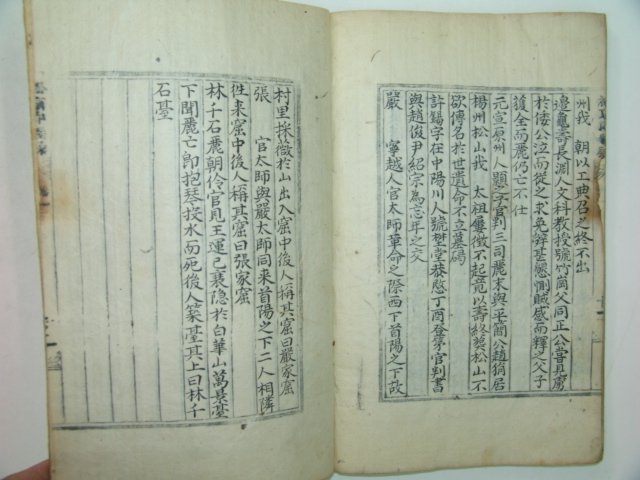 州我 朝以工典召之終不出
邊龜壽長淵人文科教授號竹崗父同正公嘗見虜
於倭公泣而從之求免辭甚懇惻賊感而釋之父子
獲全而麗仍亡不仕
元宣原州人題字官判三司麗末與平簡公趙狷居
楊州松山我 太祖屢徵不起竟以壽終葬松山不
欲傳名於世遺命不立墓碣
許錫字在中陽川人號塹堂恭愍丁酉登第官判書
與趙俊尹紹宗為忘年之交
嚴 寧越人官太師革命之際西下首陽之下故
村里採薇於山出入窟中後人稱其窟曰嚴家窟
張 官太師與嚴太師同来首陽之下二人相隣
徃来窟中後人稱其窟曰張家窟
林千石麗朝伶官見王運已衰隐於白華山萬景臺
下聞麗亡即抱琴投水而死後人篆臺其上曰林千
石臺